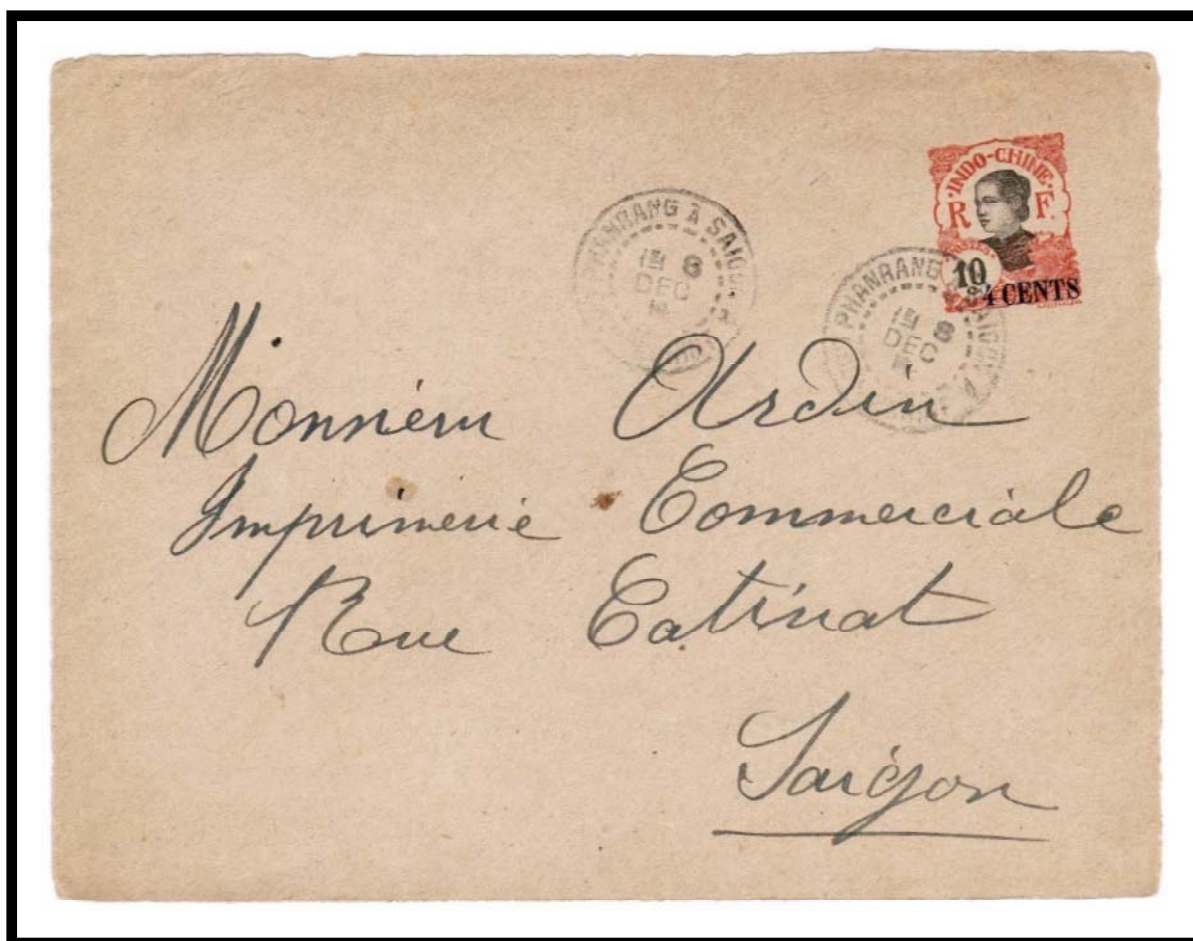 INDO-CHINE
R F
POSTES
10
4 CENTS
PHANRANG A SAIGON
8
DEC
PHANRANG A SAIGON
8
DEC
Monsieur Ardin
Imprimerie Commerciale
Rue Catinat
Saigon